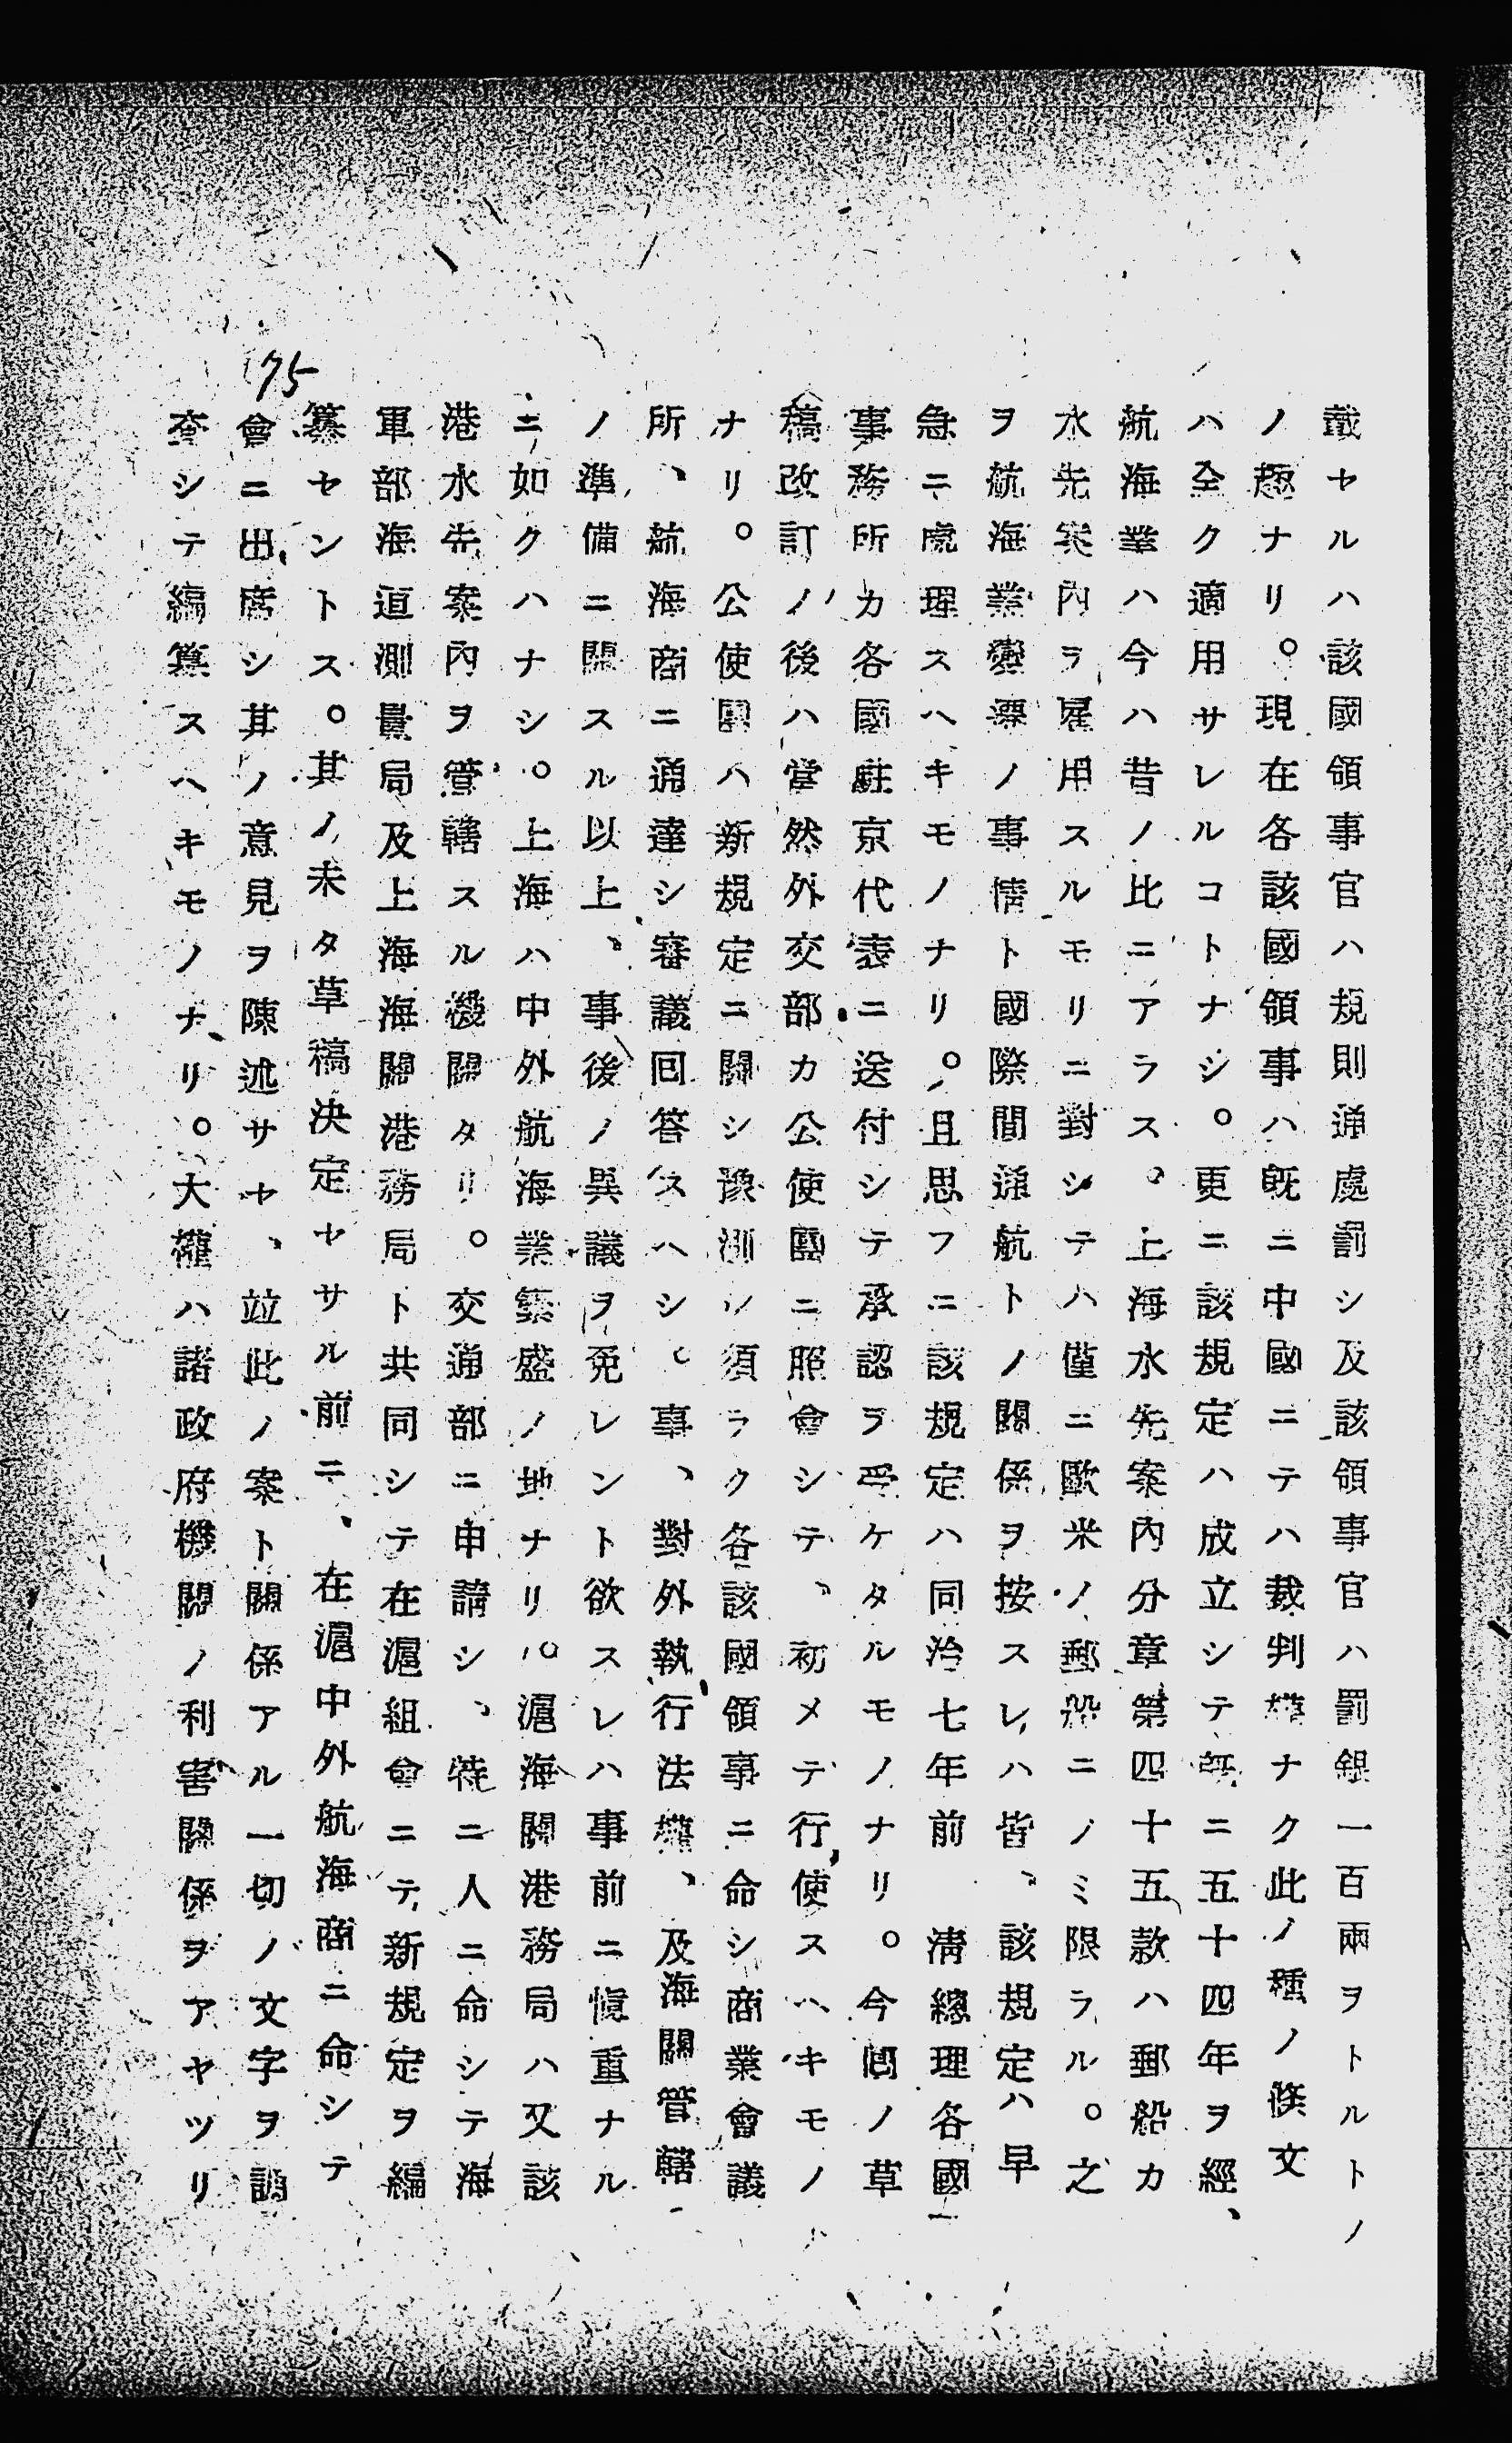 載セルハ該國領事官ハ規則通處罰シ及該領事官ハ罰銀一百兩ヲトルトノ
ノ趣ナリ。現在各該國領事ハ既ニ中國ニテハ裁判權ナク此ノ種ノ條文
ハ全ク適用サレルコトナシ。更ニ該規定ハ成立シテ既ニ五十四年ヲ經、
航海業ハ今ハ昔ノ比ニアラス。上海水先案内分章第四十五款ハ郵船カ
水先案内ヲ雇用スルモリニ對シテハ僅ニ歐米ノ郵船ニノミ限ラル。之
ヲ航海業變遷ノ事情ト國際間通航トノ關係ヲ按スレハ皆、該規定ハ早
急ニ處理スヘキモノナリ。且思フニ該規定ハ同治七年前 清總理各國
事務所カ各國駐京代表ニ送付シテ承認ヲ受ケタルモノナリ。今間ノ草
稿改訂ノ後ハ當然外交部カ公使團ニ照會シテ、初メテ行使スヘキモノ
ナリ。公使團ハ新規定ニ關シ豫測ノ須ラク各該國領事ニ命シ商業會議
所、航海商ニ通達シ審議回答スヘシ。事、對外執行法權、及海關管轄
ノ準備ニ關スル以上、事後ノ異議ヲ免レント欲スレハ事前ニ愼重ナル
ニ如クハナシ。上海ハ中外航海業繁盛ノ地ナリ。滬海關港務局ハ又該
港水先案内ヲ管轄スル機關タリ。交通部ニ申請シ、特ニ人ニ命シテ海
軍部海道測量局及上海海關港務局ト共同シテ在滬組會ニテ新規定ヲ編
纂セントス。其ノ未タ草稿決定ヤサル前ニ、在滬中外航海商ニ命シテ
會ニ出席シ其ノ意見ヲ陳述サヤ、竝此ノ案ト關係アル一切ノ文字ヲ調
查シテ編纂スヘキモノナリ。大權ハ諸政府機關ノ利害關係ヲアヤツリ
75